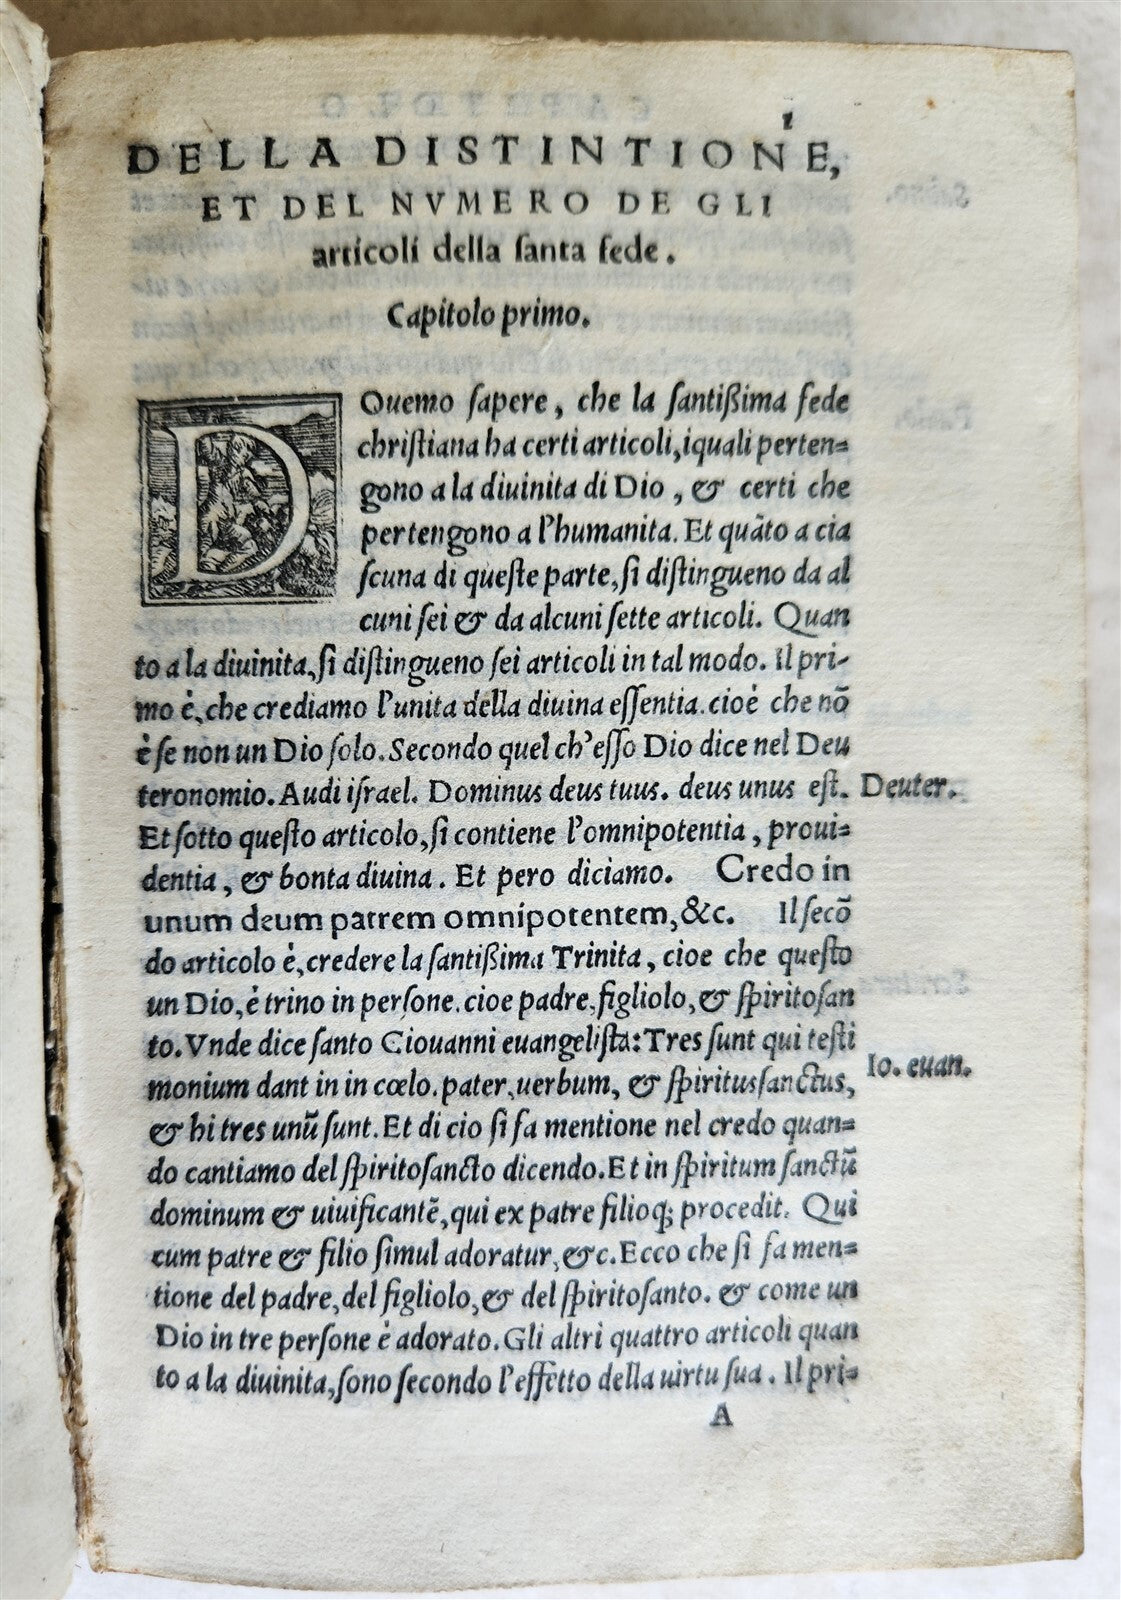 1
DELLA DISTINTIONE,
ET DEL NVMERO DE GLI
articoli della ſanta fede.
Capitolo primo.
DOuemo ſapere, che la ſantißima fede
chriſtiana ha certi articoli, iquali perten=
gono a la diuinita di Dio, & certi che
pertengono a l'humanita. Et quāto a cia
ſcuna di queſte parte, ſi diſtingueno da al
cuni ſei & da alcuni ſette articoli. Quan
to a la diuinita, ſi diſtingueno ſei articoli in tal modo. Il pri-
mo è, che crediamo l'unita della diuina eſſentia. cioè che nō
è ſe non un Dio ſolo. Secondo quel ch'eſſo Dio dice nel Deu
teronomio. Audi iſrael. Dominus deus tuus. deus unus eſt. Deuter.
Et ſotto queſto articolo, ſi contiene l'omnipotentia, proui=
dentia, & bonta diuina. Et pero diciamo. Credo in
unum deum patrem omnipotentem, &c. Il ſecō
do articolo è, credere la ſantißima Trinita, cioe che queſto
un Dio, è trino in perſone. cioe padre, figliolo, & ſpiritoſan
to. Vnde dice ſanto Giouanni euangeliſta: Tres ſunt qui teſti
monium dant in in cœlo. pater, uerbum, & ſpiritusſanctus, Io. euan.
& hi tres unū ſunt. Et di cio ſi fa mentione nel credo quan=
do cantiamo del ſpiritoſancto dicendo. Et in ſpiritum ſanctū
dominum & uiuificantē, qui ex patre filioq; procedit. Qui
cum patre & filio ſimul adoratur, &c. Ecco che ſi fa men=
tione del padre, del figliolo, & del ſpiritoſanto. & come un
Dio in tre perſone è adorato. Gli altri quattro articoli quan
to a la diuinita, ſono ſecondo l'effetto della uirtu ſua. Il pri=
A